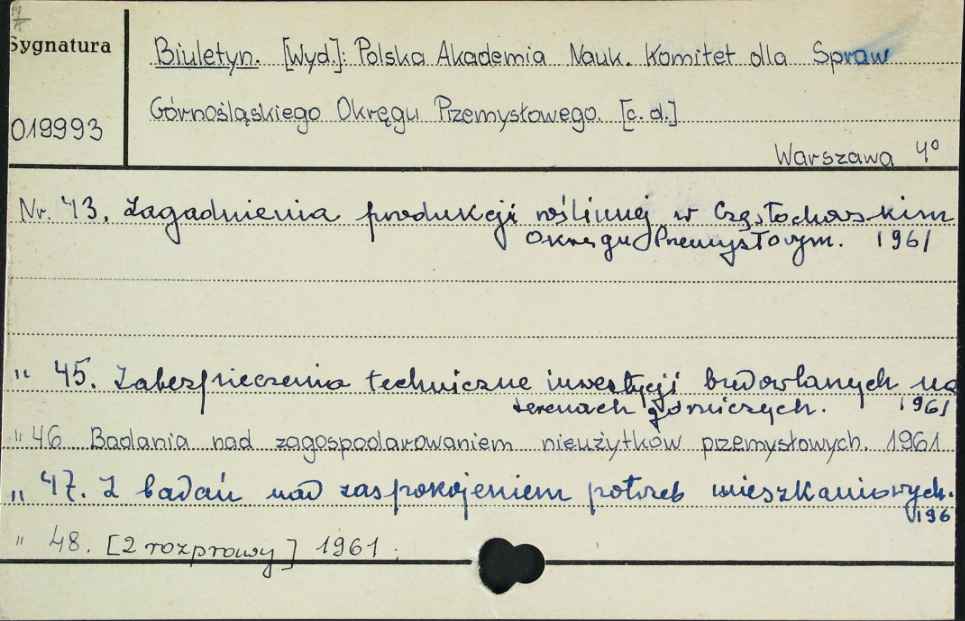 Sygnatura
Biuletyn. [Wyd.]: Polska Akademia Nauk. Komitet dla Spraw
Górnośląskiego Okręgu Przemysłowego. [c. d.]
019993
Warszawa 4°
Nr. 43. Zagadnienia produkcji roślinnej w Częstochowskim
Okręgu Przemysłowym. 1961
" 45. Zabezpieczenia techniczne inwestycji budowlanych na
terenach górniczych. 1961
" 46 Badania nad zagospodarowaniem nieużytków przemysłowych. 1961
" 47. Z badań nad zaspokojeniem potrzeb mieszkaniowych.
196
" 48. [2 rozprawy] 1961.